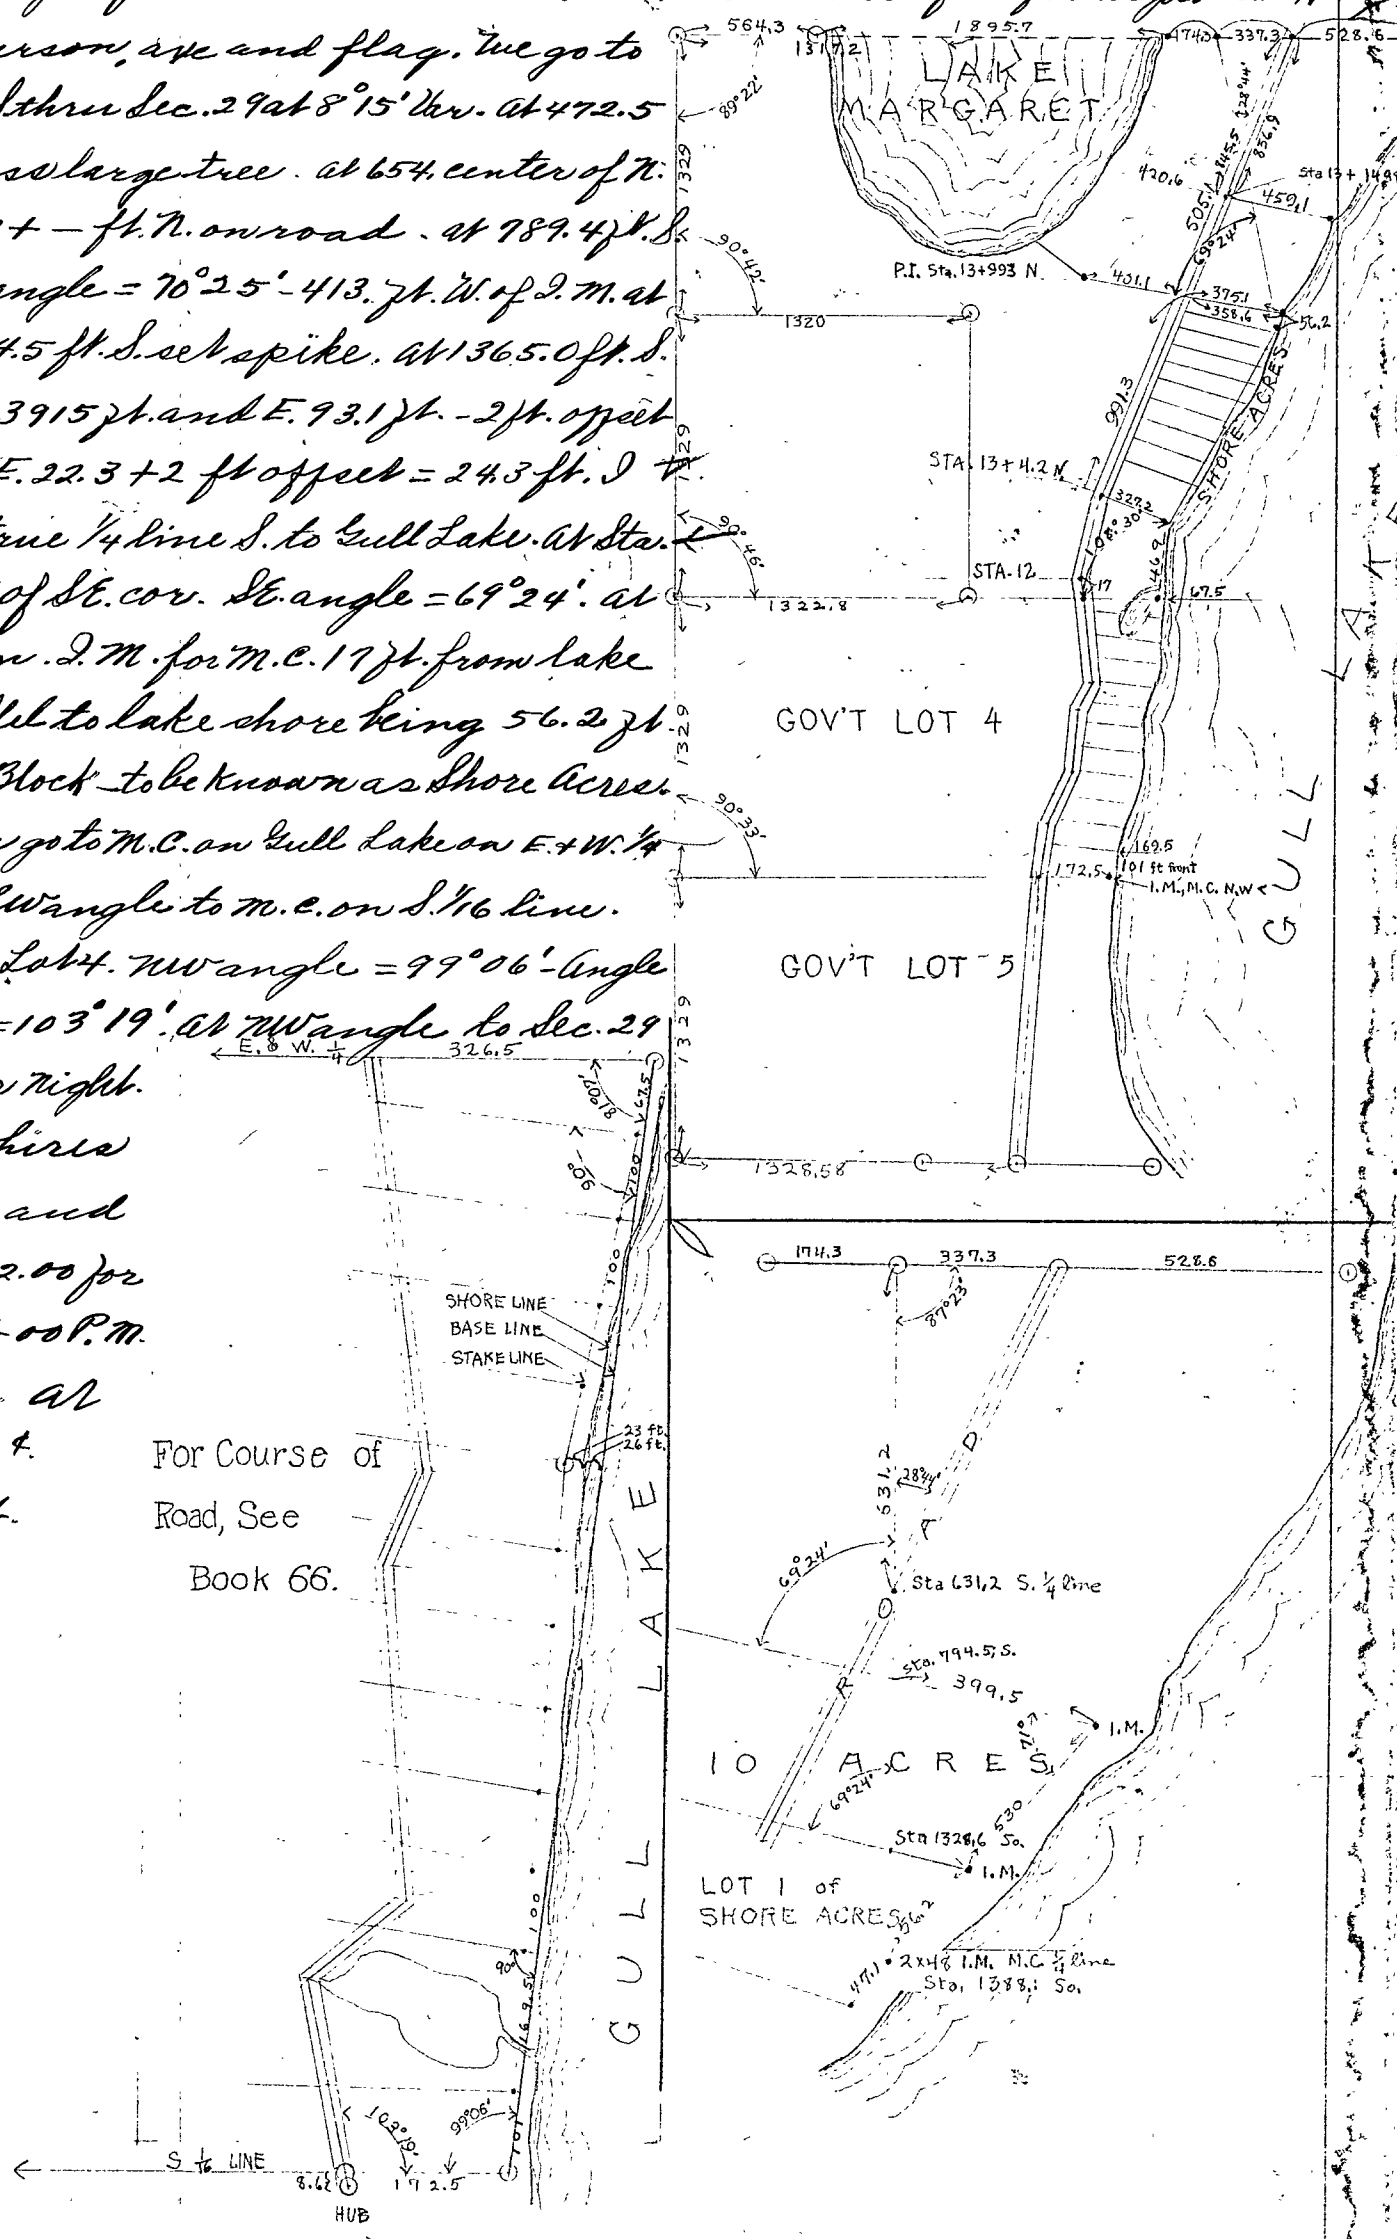 erson, axe and flag. We go to
thru Sec. 29 at 8°15' Var. At 472.5
ss large tree. at 654. center of N.
+ - ft. N. on road - at 789.4 ft. S.
angle = 70°25' - 413. ft. W. of I.M. at
4.5 ft. S. set spike. at 1365.0 ft. S.
3915 ft. and E. 93.1 ft. - 2 ft. offset
E. 22.3 + 2 ft offset = 24.3 ft. I
rue 1/4 line S. to Gull Lake. At Sta.
of SE. cor. SE. angle = 69°24'. at
I.M. for M.C. 17 ft. from lake
lel to lake shore being 56.2 ft.
Block - to be known as Shore Acres.
go to M.C. on Gull Lake on E. + W. 1/4
W angle to M.C. on S. 1/16 line.
Lot 4. NW angle = 99°06' - Angle
= 103°19'. at NW angle to Sec. 29
night.
hires
and
2.00 for
00 P.M.
at
For Course of
Road, See
Book 66.
564.3
1317.2
1895.7
174.3
337.3
528.6
LAKE
MARGARET
89°22'
1329
28°44'
845.5
856.9
420.6
505.1
Sta 13+149
459.1
69°24'
90°42'
P.I. Sta. 13+993 N.
401.1
375.1
358.6
56.2
1320
991.3
SHORE ACRES
1329
STA. 13+4.2 N
327.2
108°30'
90°46'
STA. 12
17
146.9
67.5
1322.8
GOV'T LOT 4
1329
90°33'
169.5
101 ft front
172.5
I.M., M.C. N.W
GULL
LA
GOV'T LOT 5
1329
1328.58
E. & W. 1/4
326.5
81°07'
67.5
90°
100
100
SHORE LINE
BASE LINE
STAKE LINE
23 ft.
26 ft.
GULL LAKE
100
90°
169.5
103°19'
99°06'
101
S 1/16 LINE
8.62
172.5
HUB
174.3
337.3
528.6
87°23'
631.2
28°44'
ROAD
69°24'
Sta 631.2 S. 1/4 line
Sta. 794.5, S.
399.5
I.M.
10 ACRES
69°24'
530
Sta 1328.6 So.
I.M.
LOT 1 of
SHORE ACRES
47.1
2x48 I.M. M.C. 1/4 line
Sta. 1388.1 So.